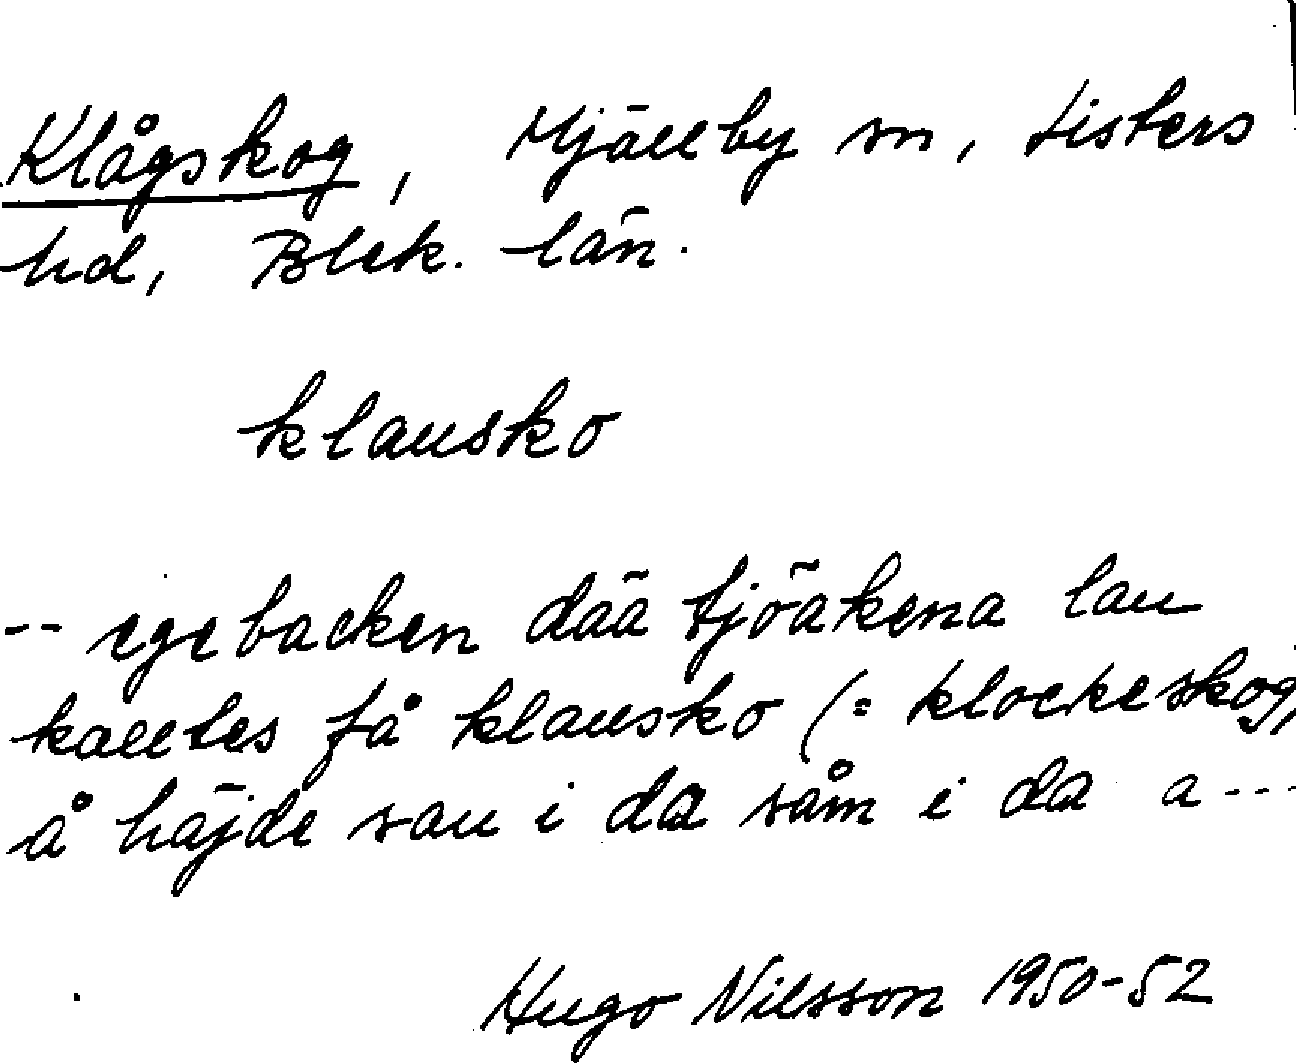 Klågskog, Mjällby sn, Listers
hd, Blek. län.
klausko
-- egebacken dää tjörkena lau
kalltes få klausko (= klockeskog)
å häjde sau i da såm i da a---
Hugo Nilsson 1950-52